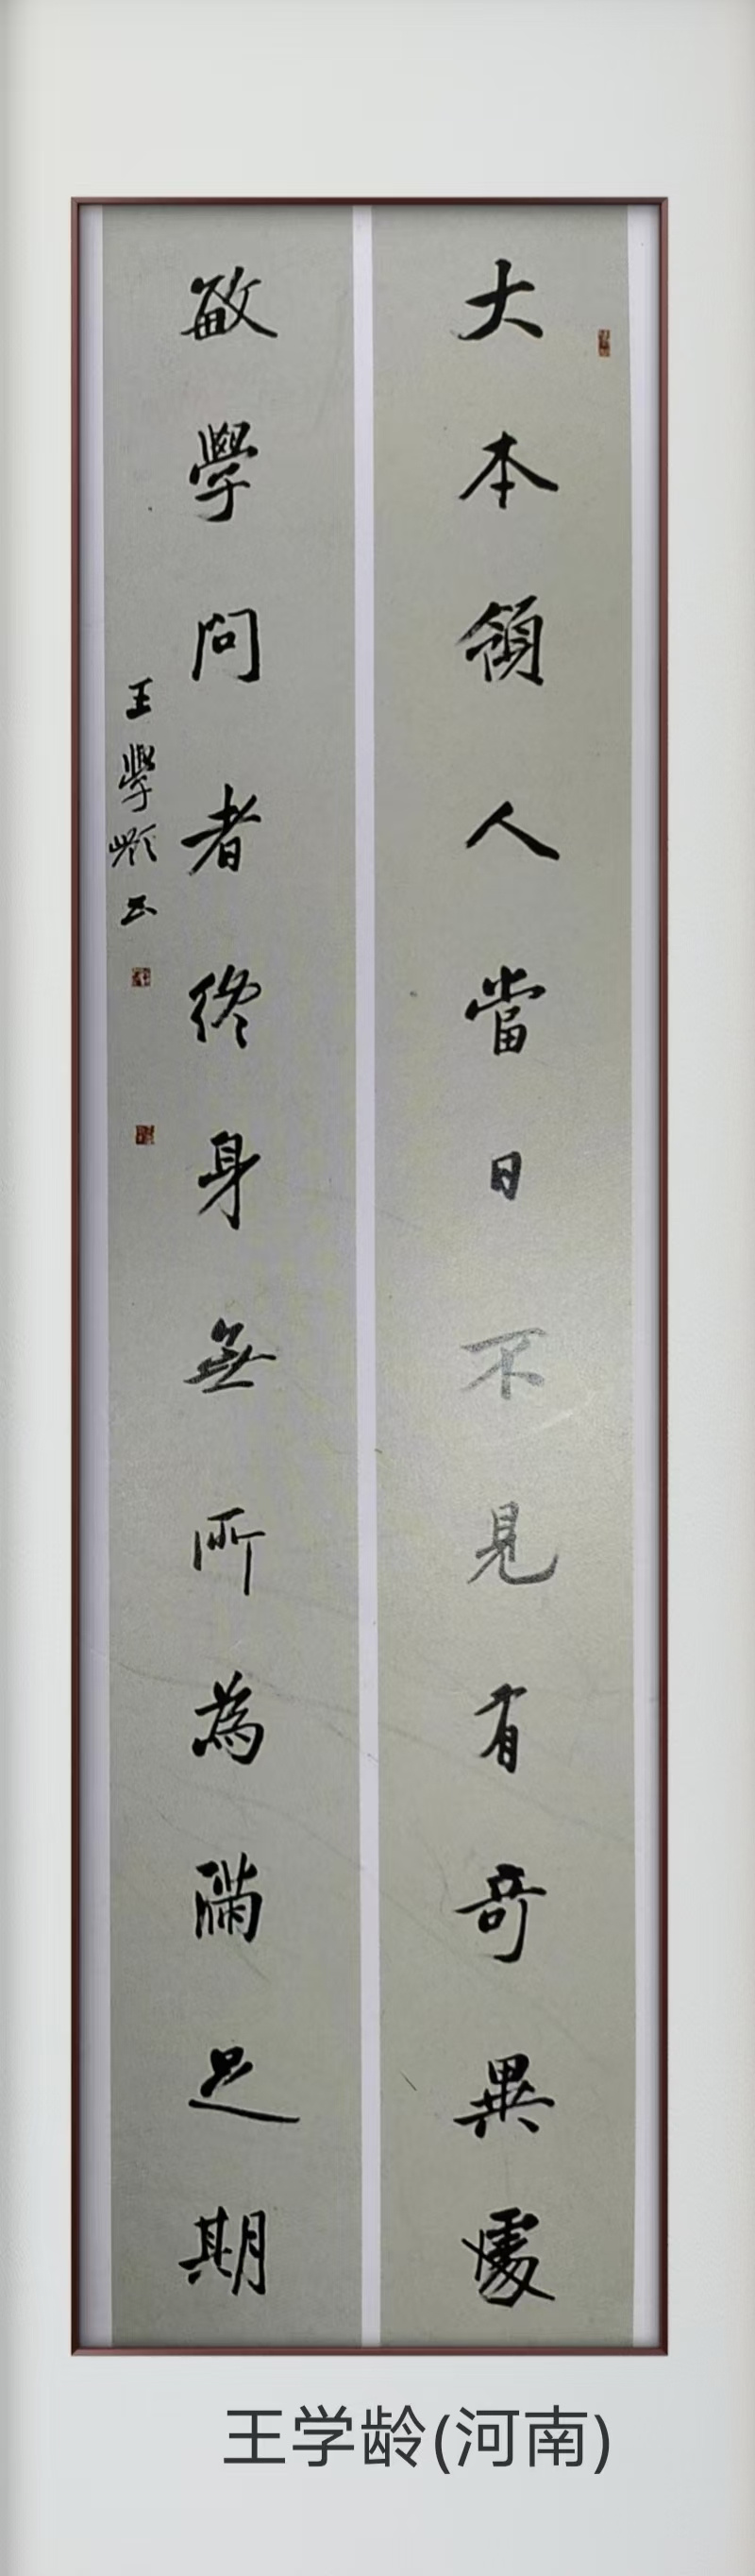 大本領人當日不見有奇異處
敏學問者終身無所為滿足期
王學齡书
王学龄(河南)